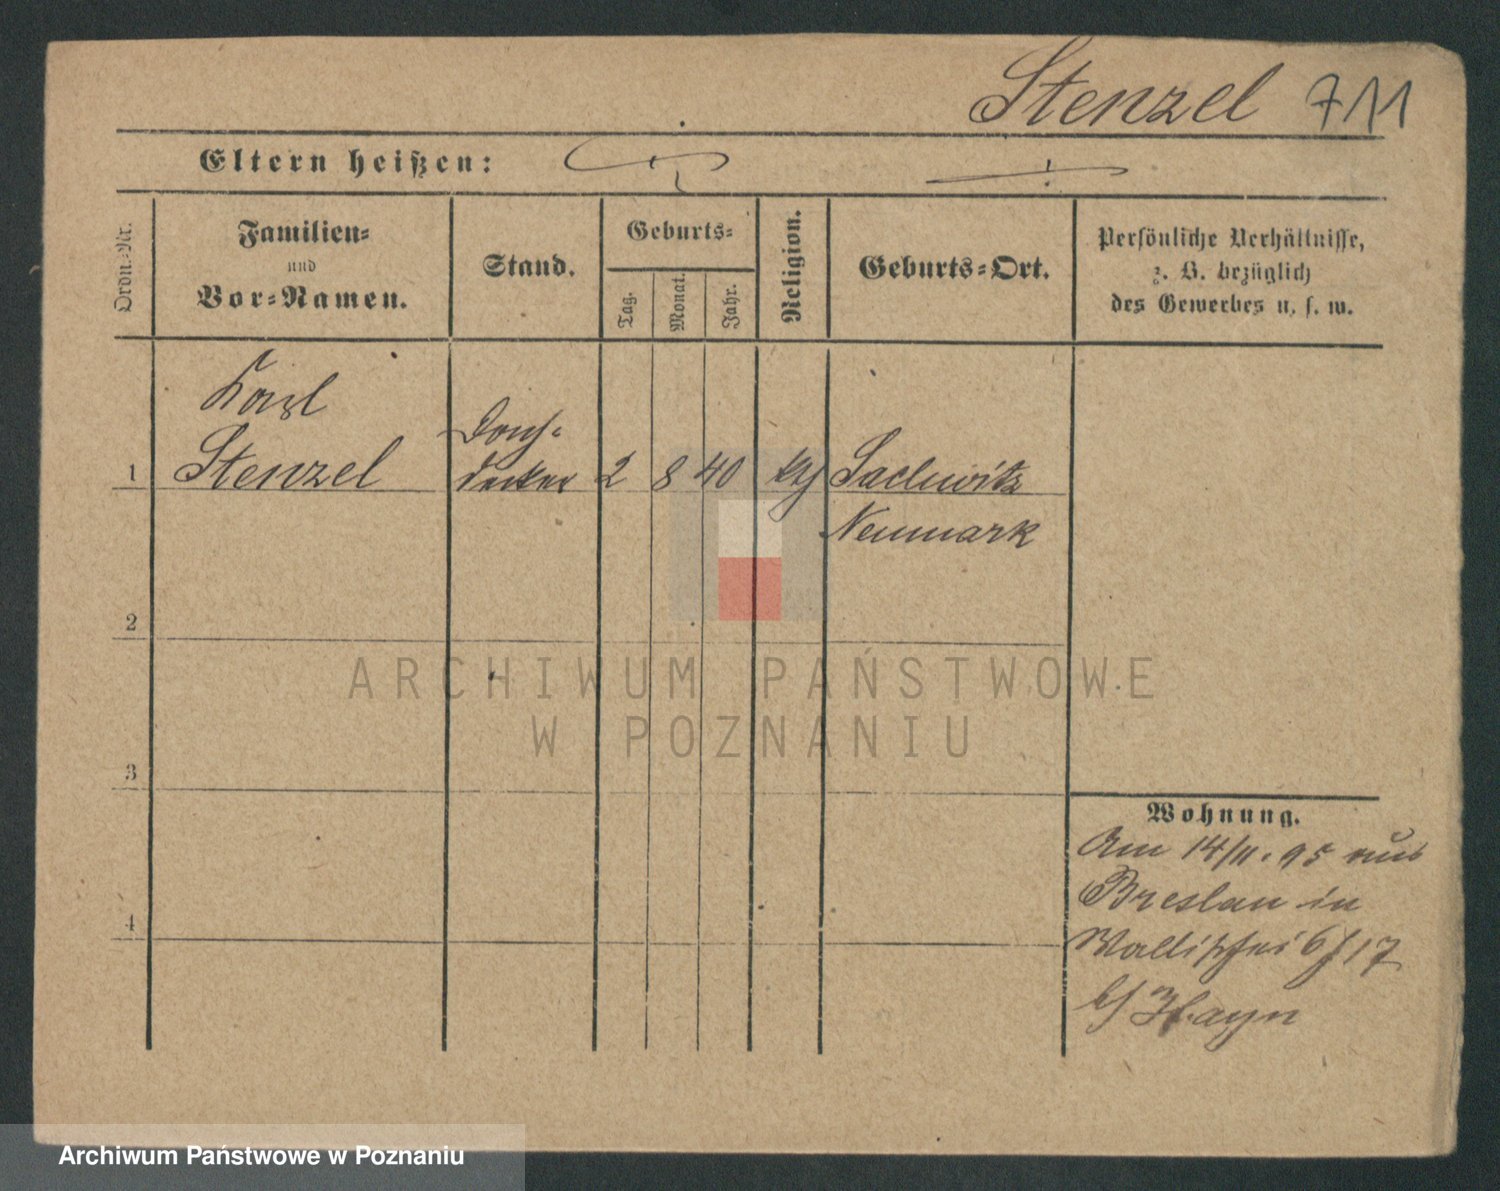 Stenzel 711
Eltern heißen:
Ordn.-Nr.
Familien-
und
Vor-Namen.
Stand.
Geburts-
Tag.
Monat.
Jahr.
Religion.
Geburts-Ort.
Persönliche Verhältnisse,
z. B. bezüglich
des Gewerbes u. s. w.
Karl
Dach-
1 Stenzel decker 2 8 40 kth Sachwitz
Neumark
2
ARCHIWUM PAŃSTWOWE
W POZNANIU
3
Wohnung.
Am 14/11.95 aus
4 Breslau in
Wallischei 6/17
b/ Hayn
Archiwum Państwowe w Poznaniu